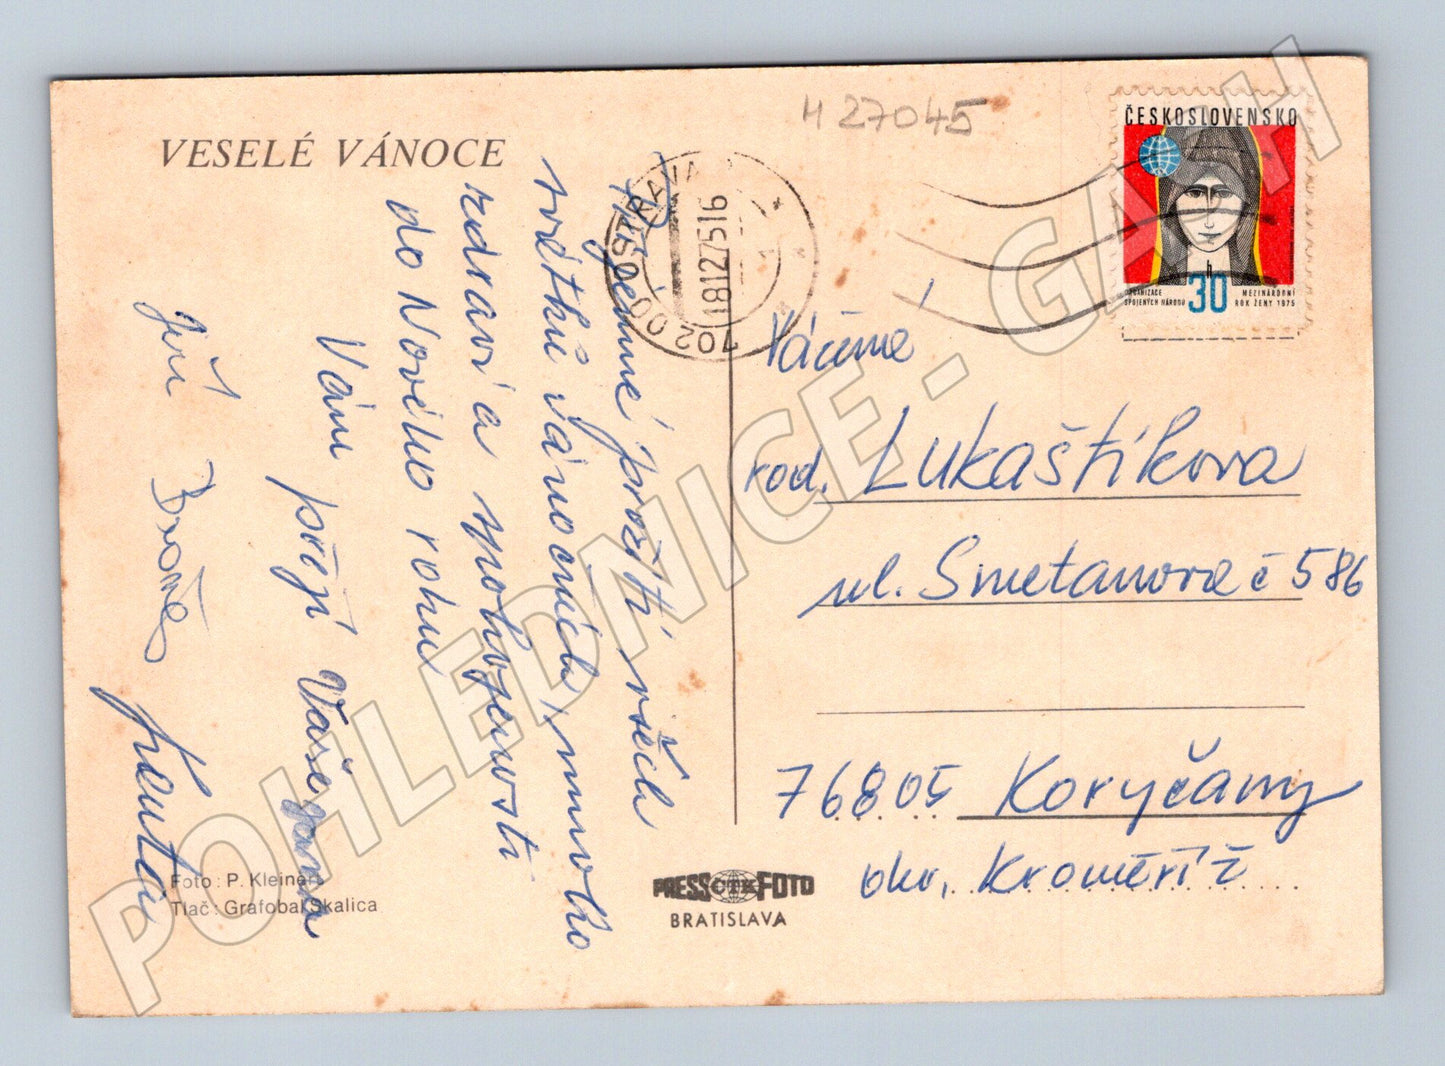 VESELÉ VÁNOCE
H 27045
ČESKOSLOVENSKO
h
30
ORGANIZACE
SPOJENÝCH NÁRODŮ
MEZINÁRODNÍ
ROK ŽENY 1975
702 00 OSTRAVA
18.12.75 16
Příjemné prožití všech
svátků vánočních, mnoho
zdraví a spokojenosti
do Nového roku
Vám přejí Vaše
Jiří
Vážená
rod. Lukaštíkova
ul. Smetanova č 586
76805 Koryčany
okr. Kroměříž
Foto: P. Kleinert
Tlač: Grafobal Skalica
PRESS ČTK FOTO
BRATISLAVA
POHLEDNICE - GASH